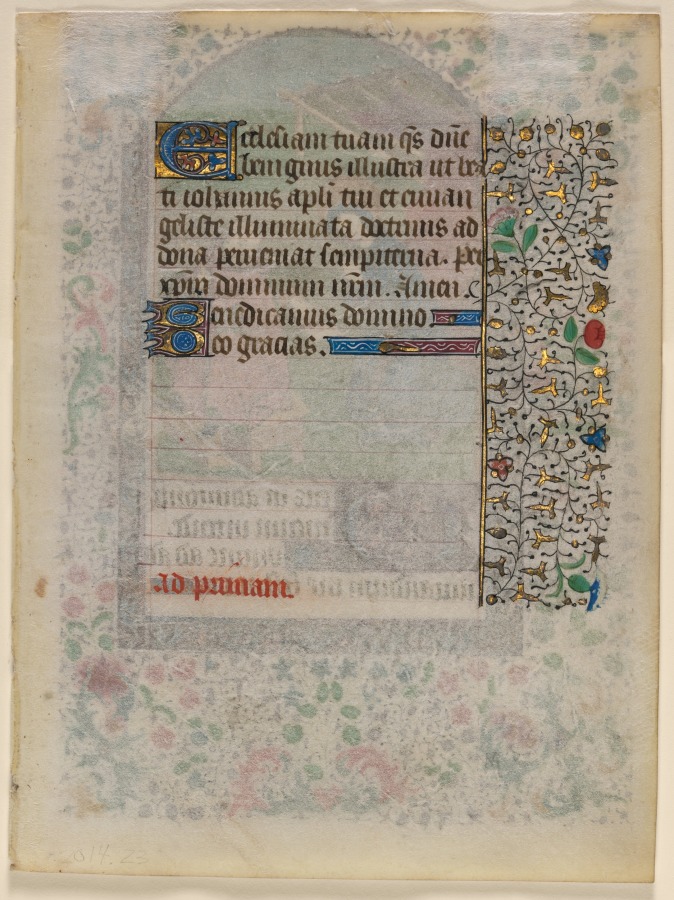 Ecclesiam tuam q̃s dñe
benignus illustra ut bea
ti iohannis apli tui et euuan
geliste illuminata doctrinis ad
dona perueniat sempiterna. per
xp̃m dominum nr̃m. Amen.
Benedicamus domino
Deo gracias.
Ad primam.